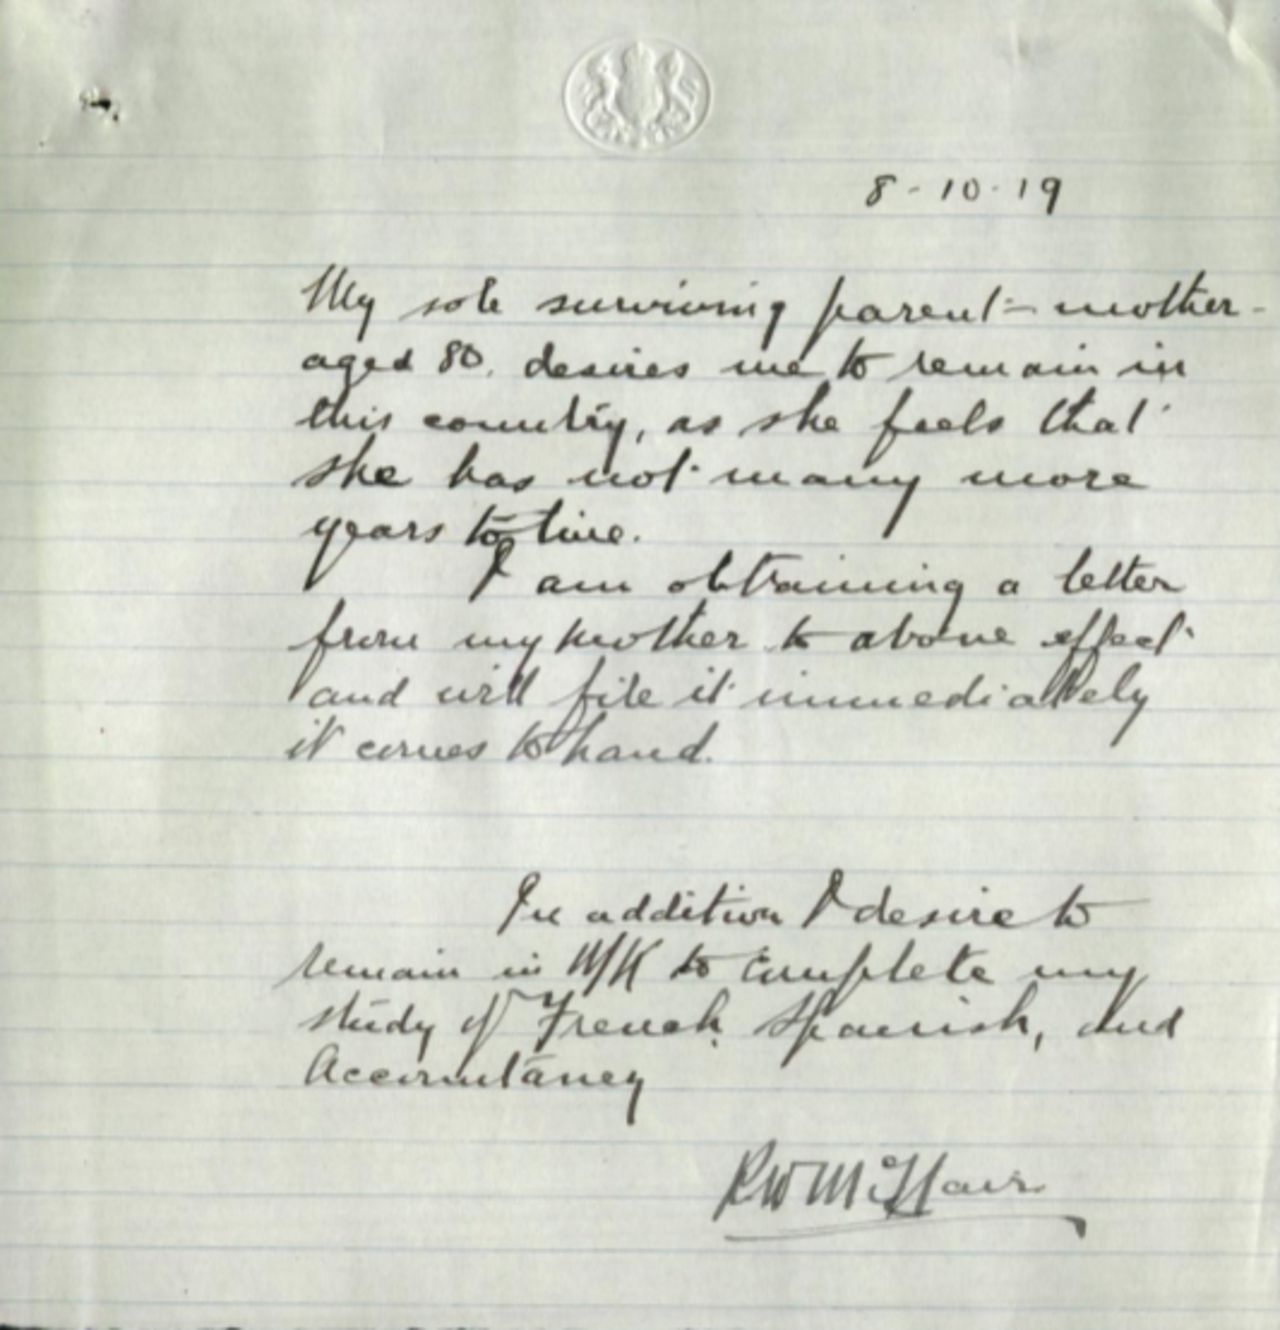 8-10-19
My sole surviving parent - mother -
aged 80, desires me to remain in
this country, as she feels that
she has not many more
years to live.
I am obtaining a letter
from my mother to above effect
and will file it immediately
it comes to hand.
In addition I desire to
remain in U/K to complete my
study of French, Spanish, and
Accountancy